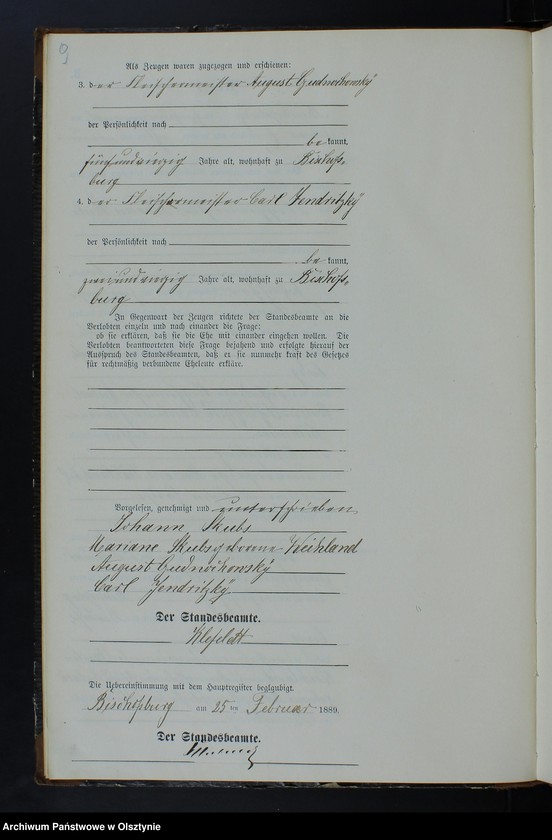 9
Als Zeugen waren zugezogen und erschienen:
3. der Fleischermeister August
der Persönlichkeit nach
be kannt,
fünfundvierzig Jahre alt, wohnhaft zu Bischofs-
burg
4. der Fleischermeister Carl Jendritzky
der Persönlichkeit nach
be kannt,
zweiundvierzig Jahre alt, wohnhaft zu Bischofs-
burg
In Gegenwart der Zeugen richtete der Standesbeamte an die
Verlobten einzeln und nach einander die Frage:
ob sie erklären, daß sie die Ehe mit einander eingehen wollen. Die
Verlobten beantworteten diese Frage bejahend und erfolgte hierauf der
Ausspruch des Standesbeamten, daß er sie nunmehr kraft des Gesetzes
für rechtmäßig verbundene Eheleute erkläre.
Vorgelesen, genehmigt und unterschrieben
Johann Skubs
Mariane Skubs geborene
August
Carl Jendritzky
Der Standesbeamte.
Die Uebereinstimmung mit dem Hauptregister beglaubigt.
Bischofsburg am 25 ten Februar 1889.
Der Standesbeamte.
Archiwum Państwowe w Olsztynie